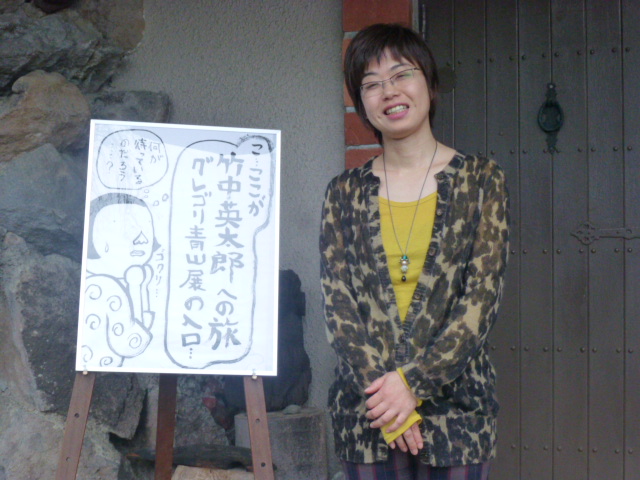 こ…ここが
竹中英太郎への旅
グレゴリ青山展の入口…
何が
待っている
のだろう
…?
ゴクリ…